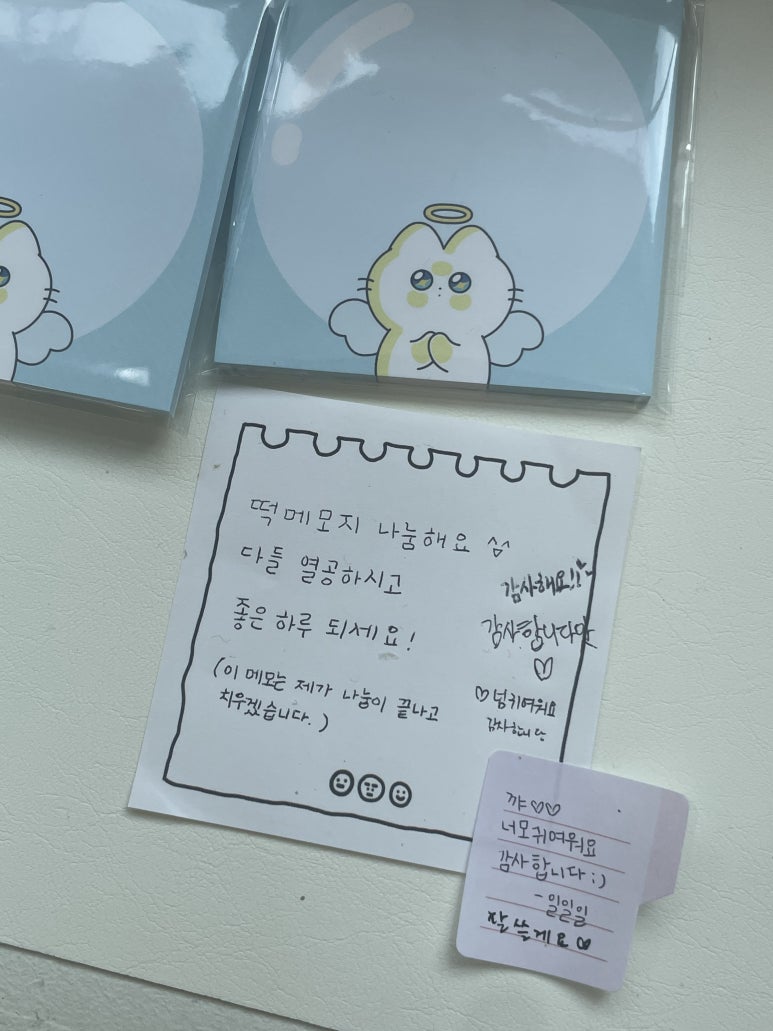 떡메모지 나눔해요 ^^
다들 열공하시고
좋은 하루 되세요!
(이 메모는 제가 나눔이 끝나고
치우겠습니다.)
감사해요!!
감사합니다앙
♡
♡넘귀여워요
감사합니당
꺄♡♡
너모귀여워요
감사합니다:)
-일일일
잘쓸게요♡